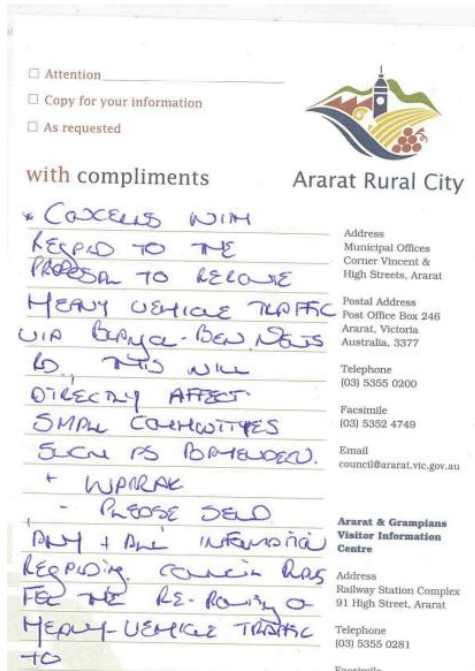 Attention
Copy for your information
As requested
with compliments
Ararat Rural City
* CONCERNS WITH
REGARD TO THE
PROPOSAL TO REROUTE
HEAVY VEHICLE TRAFFIC
VIA - BEN NEVIS
RD. THIS WILL
DIRECTLY AFFECT
SMALL COMMUNITIES
SUCH AS
+ WARRAK
- PLEASE SEND
ANY + ALL INFORMATION
REGARDING COUNCIL PLANS
FOR THE RE-ROUTING OF
HEAVY-VEHICLE TRAFFIC
TO
Address
Municipal Offices
Corner Vincent &
High Streets, Ararat
Postal Address
Post Office Box 246
Ararat, Victoria
Australia, 3377
Telephone
(03) 5355 0200
Facsimile
(03) 5352 4749
Email
council@ararat.vic.gov.au
Ararat & Grampians
Visitor Information
Centre
Address
Railway Station Complex
91 High Street, Ararat
Telephone
(03) 5355 0281
Facsimile